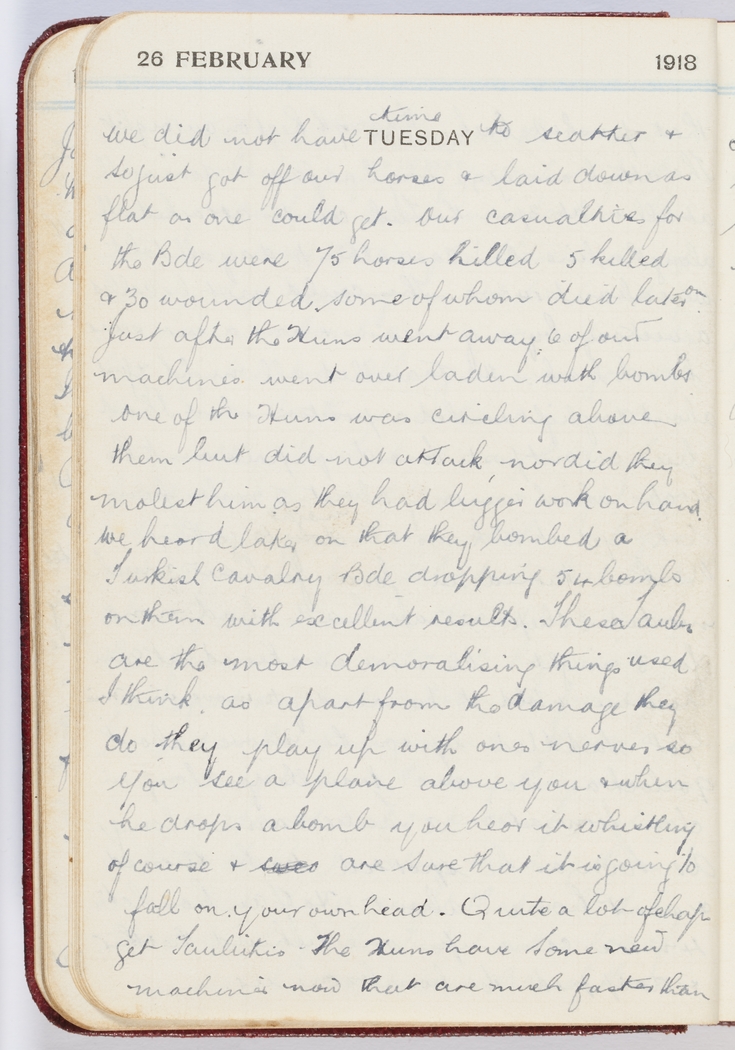 26 FEBRUARY 1918
TUESDAY
time
we did not have to scatter +
so just got off our horses & laid down as
flat as one could get. Our casualties for
the Bde were 75 horses killed 5 killed
& 30 wounded, some of whom died later on
Just after the Huns went away, 6 of our
machines went over laden with bombs
one of the Huns was circling above
them but did not attack, nor did they
molest him as they had bigger work on hand.
we heard later on that they bombed a
Turkish Cavalry Bde dropping bombs
on them with excellent results. These Taubes
are the most demoralising things used
I think, as apart from the damage they
do they play up with ones nerves so
you see a plane above you & when
he drops a bomb you hear it whistling
of course & are sure that it is going to
fall on your own head. Quite a lot of chap
get Taubitis. The Huns have some new
machines now that are much faster than